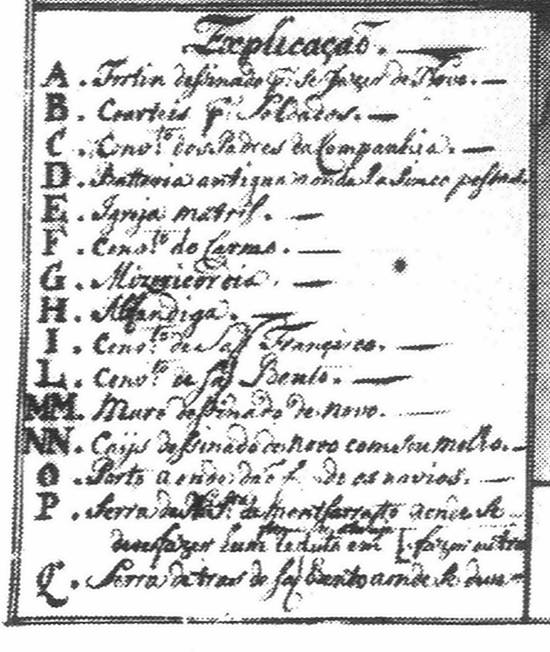 Explicação.
A. Fortin dessinado p.ª se fazer de Novo.
B. Coarteis p.ª Soldados.
C. Conv.to dos Padres da Companhia.
D. Batteria antigua
E. Igreja matris.
F. Conv.to do Carmo.
G. Mizericordia.
H. Alfandiga.
I. Conv.to de Saõ Françisco.
L. Conv.to de Saõ Bento.
MM. Muro dessinado de novo.
NN. Cays dessinado de novo com seu molle.
O. Porto aonde daõ f. de os navios.
P. Serra de monsarrate aonde se
fazer hum reduto em
Q. Serra de tras de Saõ Bento aonde se deve